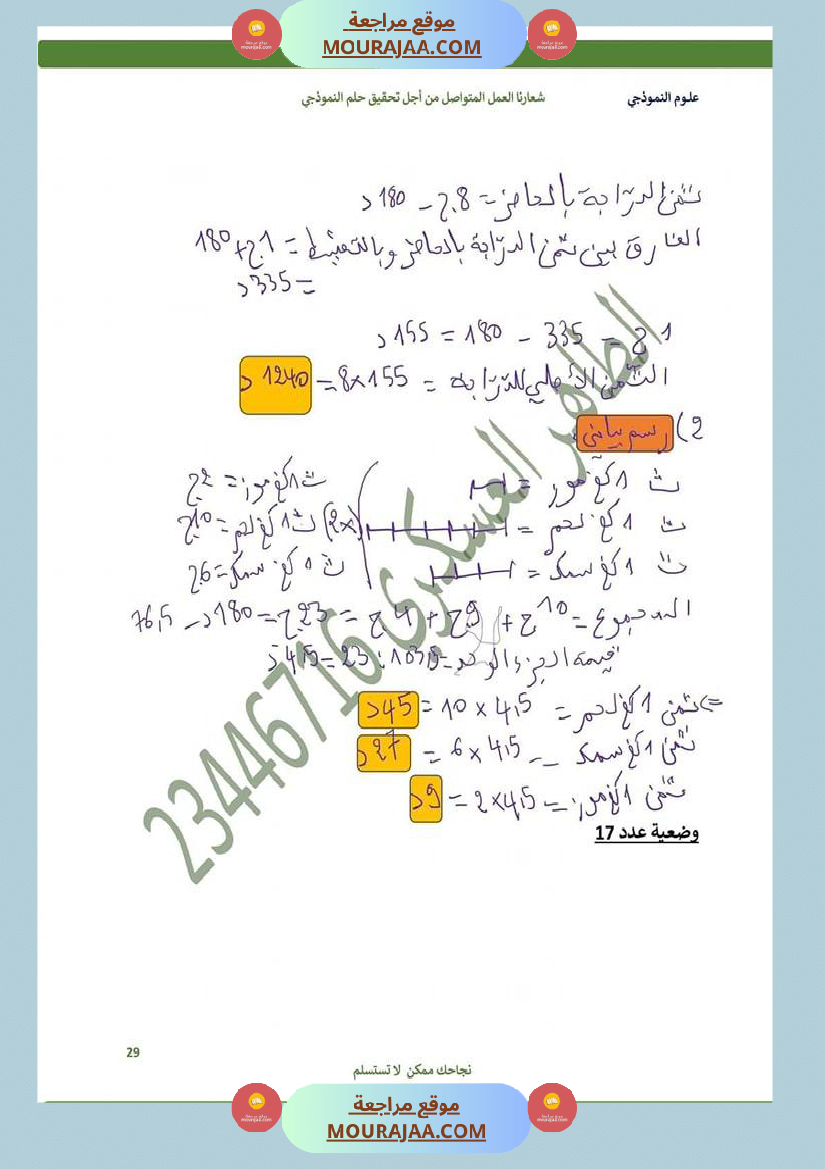 موقع مراجعة
MOURAJAA.COM
علوم النموذجي
شعارنا العمل المتواصل من أجل تحقيق حلم النموذجي
ثمن الدرّاجة بالحاضر = 8ج - 180د
الفارق بين ثمن الدرّاجة بالحاضر وبالتقسيط = 1ج + 180
= 335د
1ج = 335 - 180 = 155د
الثّمن الأصلي للدّراجة = 155×8 = 1240د
2) رسم بياني
ث 1كغ موز =
ث 1كغ موز = 2ج
ث 1كغ لحم =
(×2) ث 1كغ لحم = 10ج
ث 1كغ سمك =
ث 1كغ سمك = 6ج
المجموع = 10ج + 9ج + 4ج = 23ج = 180د - 76,5
قيمة الجزء الواحد = 103,5 : 23 = 4,5د
=> ثمن 1كغ لحم = 4,5 × 10 = 45د
ثمن 1كغ سمك = 4,5 × 6 = 27د
ثمن 1كغ موز = 4,5 × 2 = 9د
وضعية عدد 17
الطاهر العسكري 23446716
29
نجاحك ممكن لا تستسلم
موقع مراجعة
MOURAJAA.COM